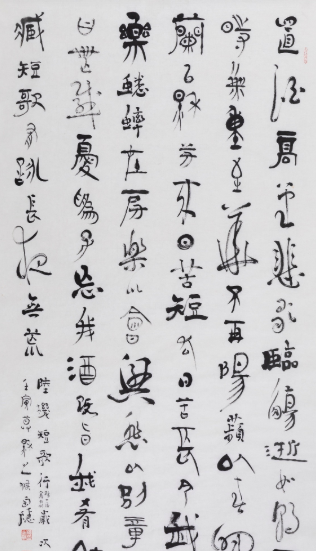 置酒高堂悲歌臨觴逝如朝
時無重至華不再陽蘋以春暉
蘭以秋芳來日苦短去日苦長今我
樂蟋蟀在房樂以會興悲以別章
曰無感憂為子忘我酒既旨我肴
臧短歌可詠長夜無荒
陸機短歌行歲次
壬寅